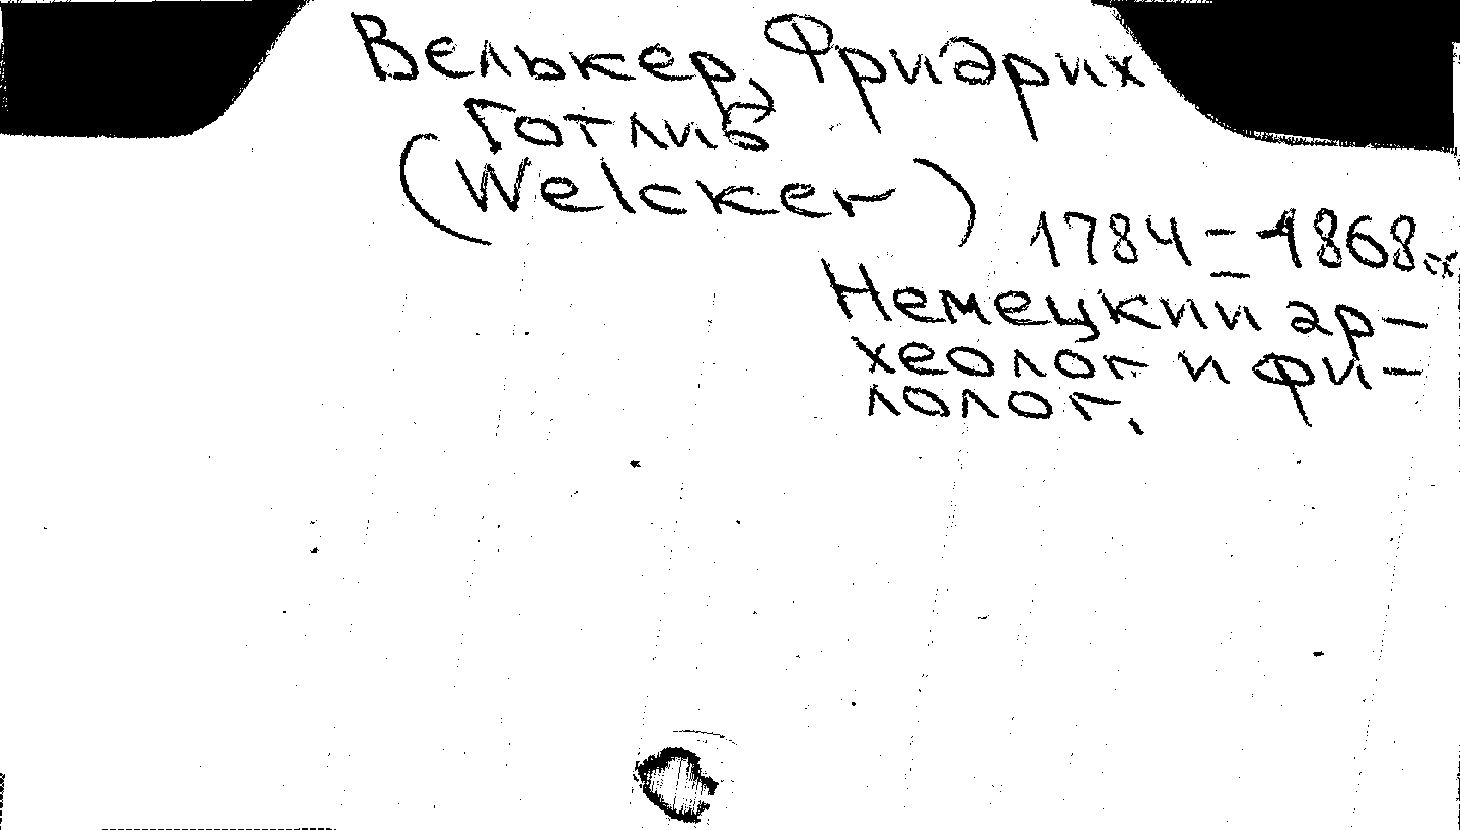 Велькер, Фридрих
Готлиб
(Welcker)
1784 = 1868
Немецкий ар-
хеолог и фи-
лолог.